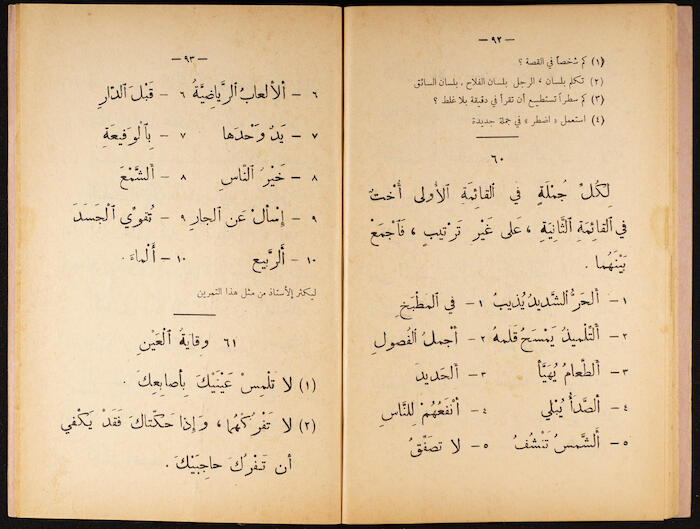 — ٩٢ —
(١) كم شخصاً في القصة ؟
(٢) تكلم بلسان ، الرجل بلسان الفلاح ، بلسان السائق
(٣) كم سطراً تستطيع ان تقرأ في دقيقة بلا غلط ؟
(٤) استعمل « اضطر » في جملة جديدة
٦٠
لِكُلِّ جُمْلَةٍ في القائِمَةِ الأولى أُخْتٌ
في القائِمَةِ الثَّانِيَةِ ، عَلى غَيْرِ تَرْتيبٍ ، فَاجْمَعْ
بَيْنَهُما .
١ – أَلحَرُّ الشَّديدُ يُذيبُ ١ – في المَطْبَخِ
٢ – أَلتِّلْميذُ يَمْسَحُ قَلَمَهُ ٢ – أَجْمَلُ الفُصولِ
٣ – أَلطَّعامُ يُهَيَّأُ ٣ – أَلحَديدَ
٤ – أَلصَّدَأُ يُبْلي ٤ – أَنْفَعُهُمْ لِلنَّاسِ
٥ – أَلشَّمْسُ تَنْشُفُ ٥ – لا تَصَفِّقُ
— ٩٣ —
٦ – أَلأَلْعابُ الرِّياضِيَّةُ ٦ – قَبْلَ الدَّارِ
٧ – يَدٌ وَحْدَها ٧ – بِالوَقيعَةِ
٨ – خَيْرُ النَّاسِ ٨ – أَلشَّمْعَ
٩ – إِسْأَلْ عَنِ الجارِ ٩ – تُقَوِّي الجَسَدَ
١٠ – أَلرَّبيع ١٠ – أَلْماءَ .
ليكثر الأستاذ من مثل هذا التمرين
٦١ وِقايَةُ العَيْنِ
(١) لا تَلْمِسْ عَيْنَيْكَ بِأَصابِعِكَ .
(٢) لا تَفْرُكْهُما ، وَإِذا حَكَّتاكَ فَقَدْ يَكْفي
أن تَفْرُكَ حاجِبَيْكَ .